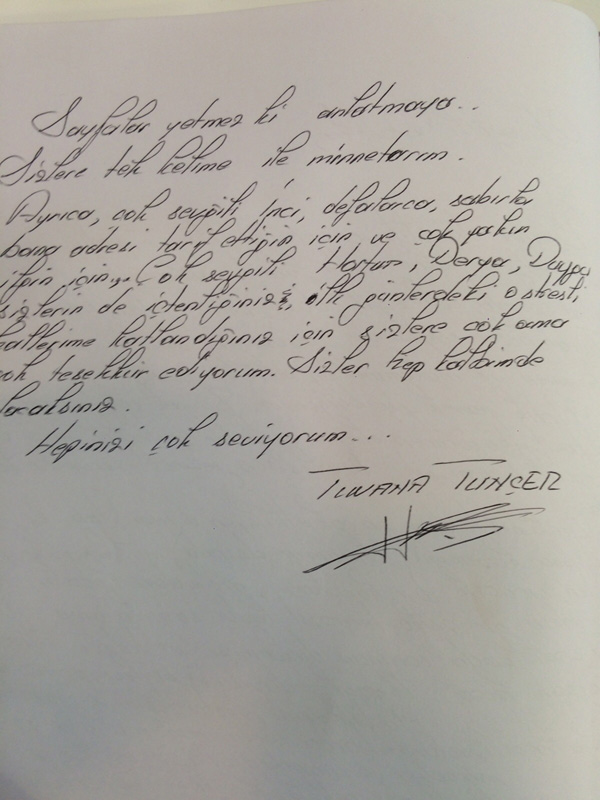 Sayfalar yetmez ki anlatmaya..
Sizlere tek kelime ile minnetarım.
Ayrıca, çok sevgili İnci, defalarca, sabırla
bana adresi tarif ettiğin için ve çok yakın
ilgin için... Çok sevgili Hatun, Derya, Duygu
sizlerin de içtenliğiniz, ilk günlerdeki o stresli
hallerime katlandığınız için sizlere çok ama
çok teşekkür ediyorum. Sizler hep kalbimde
kalacaksınız.
Hepinizi çok seviyorum...
TUVANA TUNÇER